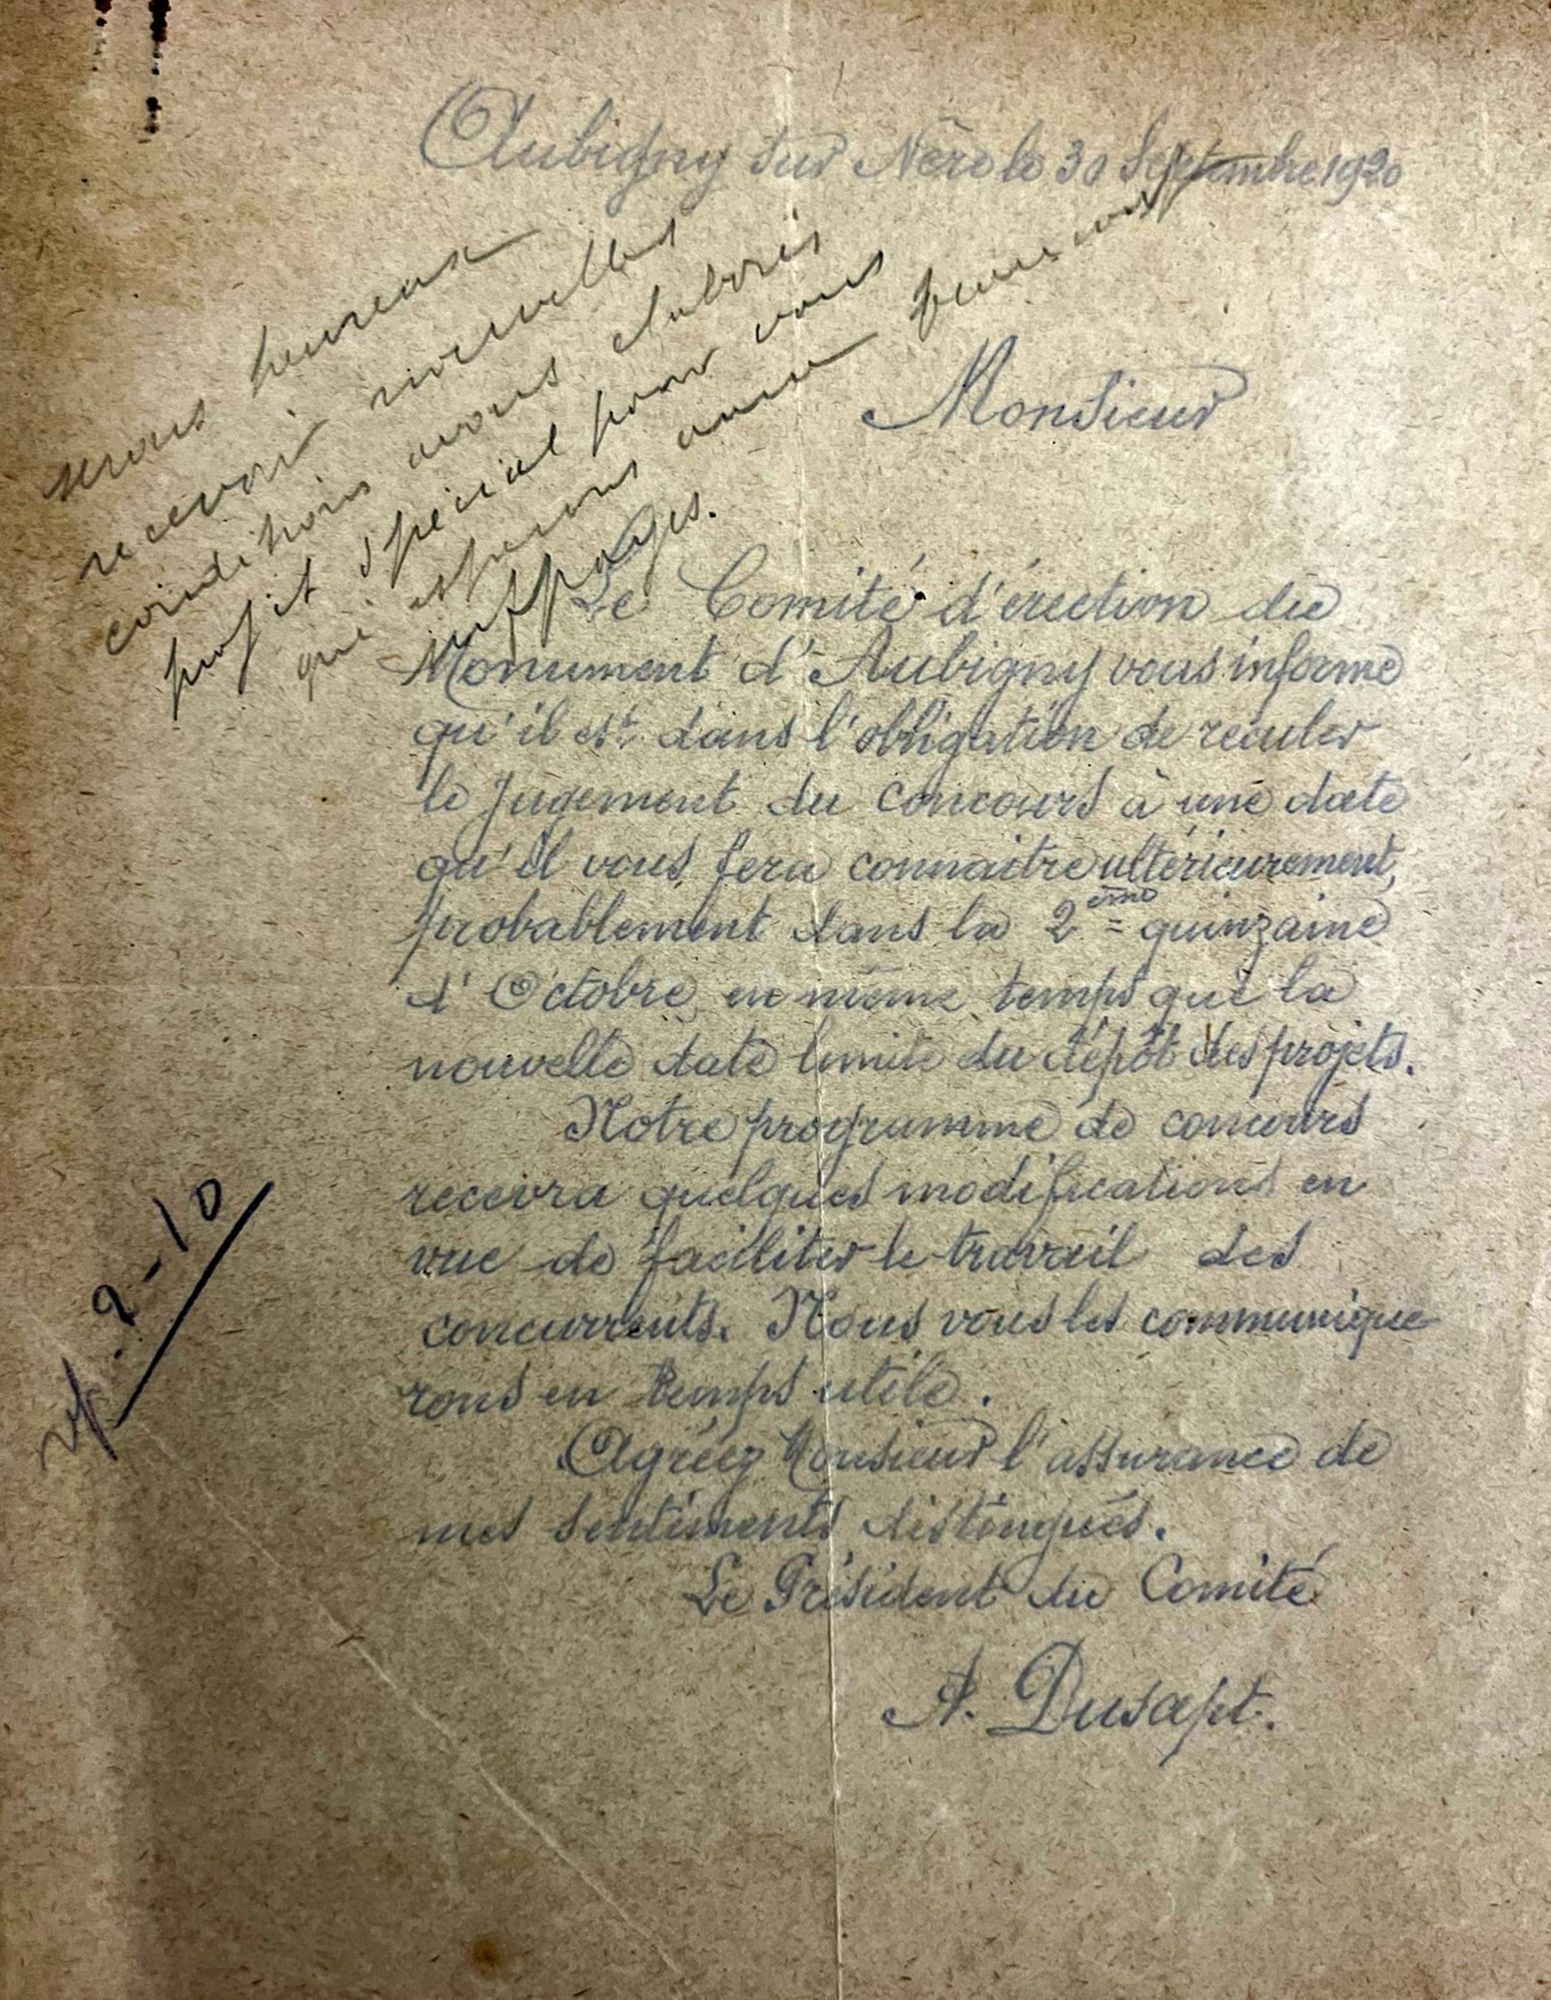 Aubigny sur Nère le 30 Septembre 1920
serons heureux
recevoir nouvelles
conditions avons élaboré
projet spécial pour vous
qui espérons aura beaucoup
suffrages.
Monsieur
Le Comité d'érection du
Monument d'Aubigny vous informe
qu'il est dans l'obligation de reculer
le Jugement du concours à une date
qu'il vous fera connaitre ultérieurement,
probablement dans la 2ème quinzaine
d'Octobre, en même temps que la
nouvelle date limite du dépôt des projets.
Notre programme de concours
recevra quelques modifications en
vue de faciliter le travail des
concurrents. Nous vous les communique
rons en temps utile.
Agréez Monsieur l'assurance de
mes sentiments distingués.
Le Président du Comité
A. Dusapt.
rép. 2-10